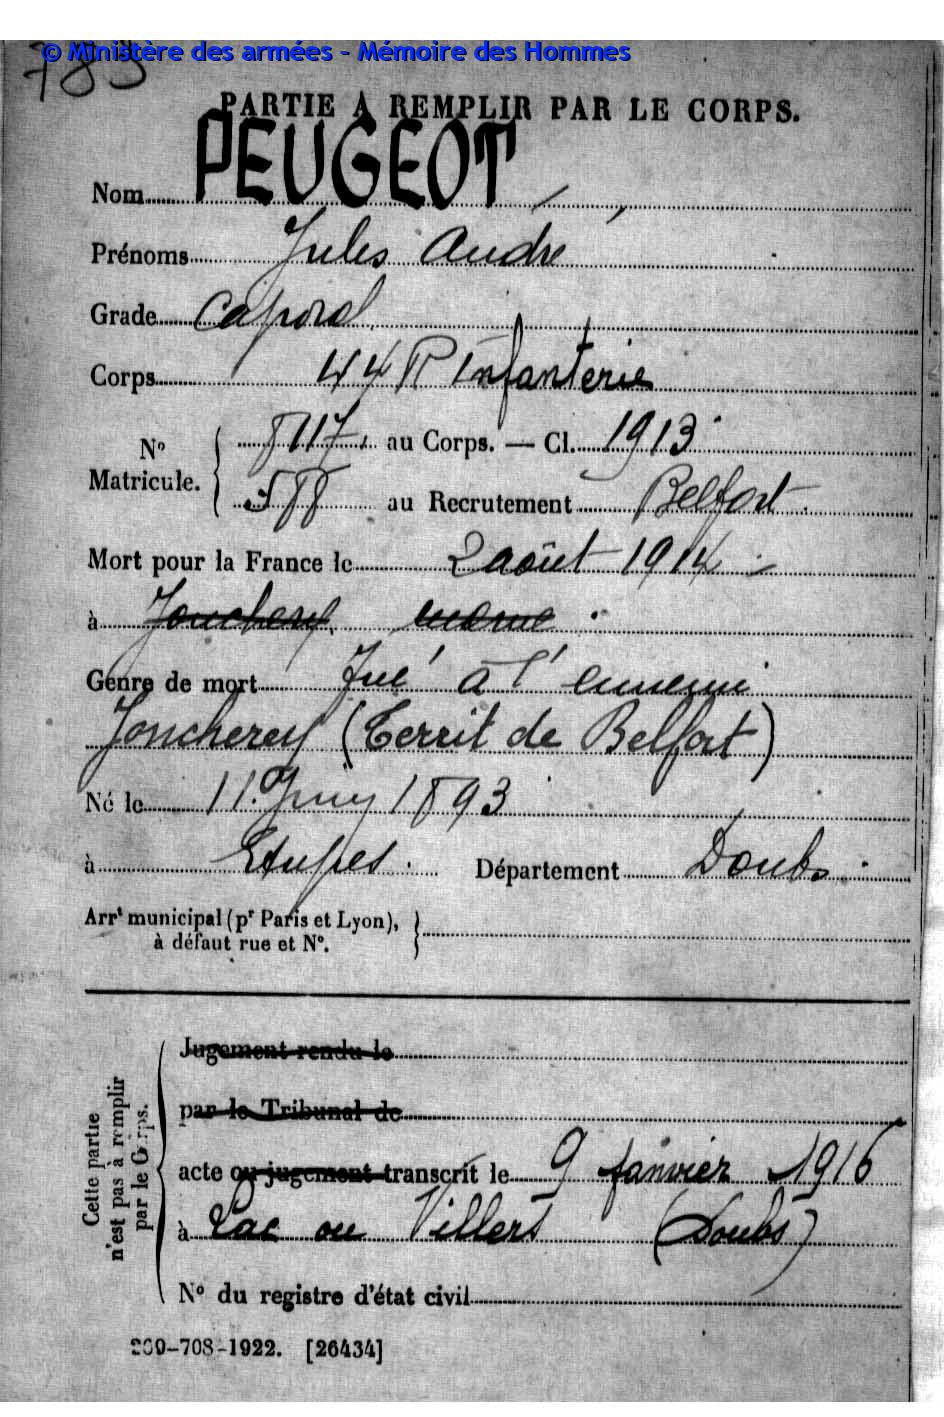 © Ministère des armées - Mémoire des Hommes
783
PARTIE À REMPLIR PAR LE CORPS.
Nom PEUGEOT
Prénoms Jules André
Grade Caporal
Corps 44 R Infanterie
N° Matricule. { 8117 au Corps. — Cl. 1913
588 au Recrutement Belfort
Mort pour la France le 2 août 1914
à Jonchery marne
Genre de mort Tué à l'ennemi
Joncherey (Territ de Belfort)
Né le 11 Juin 1893
à Etupes. Département Doubs
Arrt municipal (pr Paris et Lyon), à défaut rue et N°. }
Cette partie n'est pas à remplir par le Corps.
Jugement rendu le
par le Tribunal de
acte ou jugement transcrit le 9 Janvier 1916
à Lac ou Villers (Doubs)
N° du registre d'état civil
-708-1922. [26434]